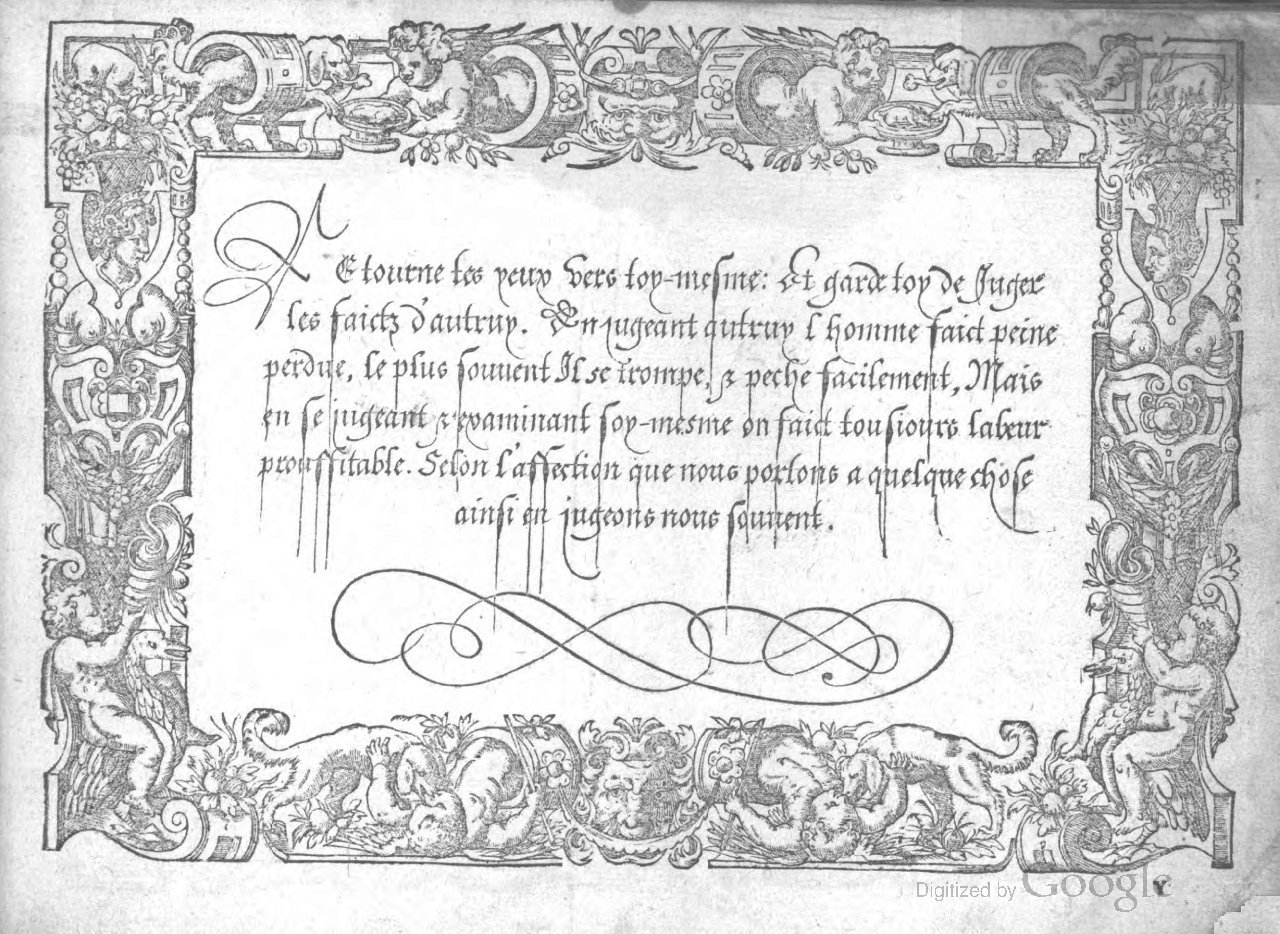 REtourne tes yeux vers toy-mesme: Et garde toy de Juger
les faictz d'autruy. En jugeant autruy l'homme faict peine
perdue, le plus souvent Il se trompe, & peche facilement, Mais
en se jugeant & examinant soy-mesme on faict tousiours labeur
prouffitable. Selon l'affection que nous portons a quelque chose
ainsi en jugeons nous souvent.
Digitized by Google
Y